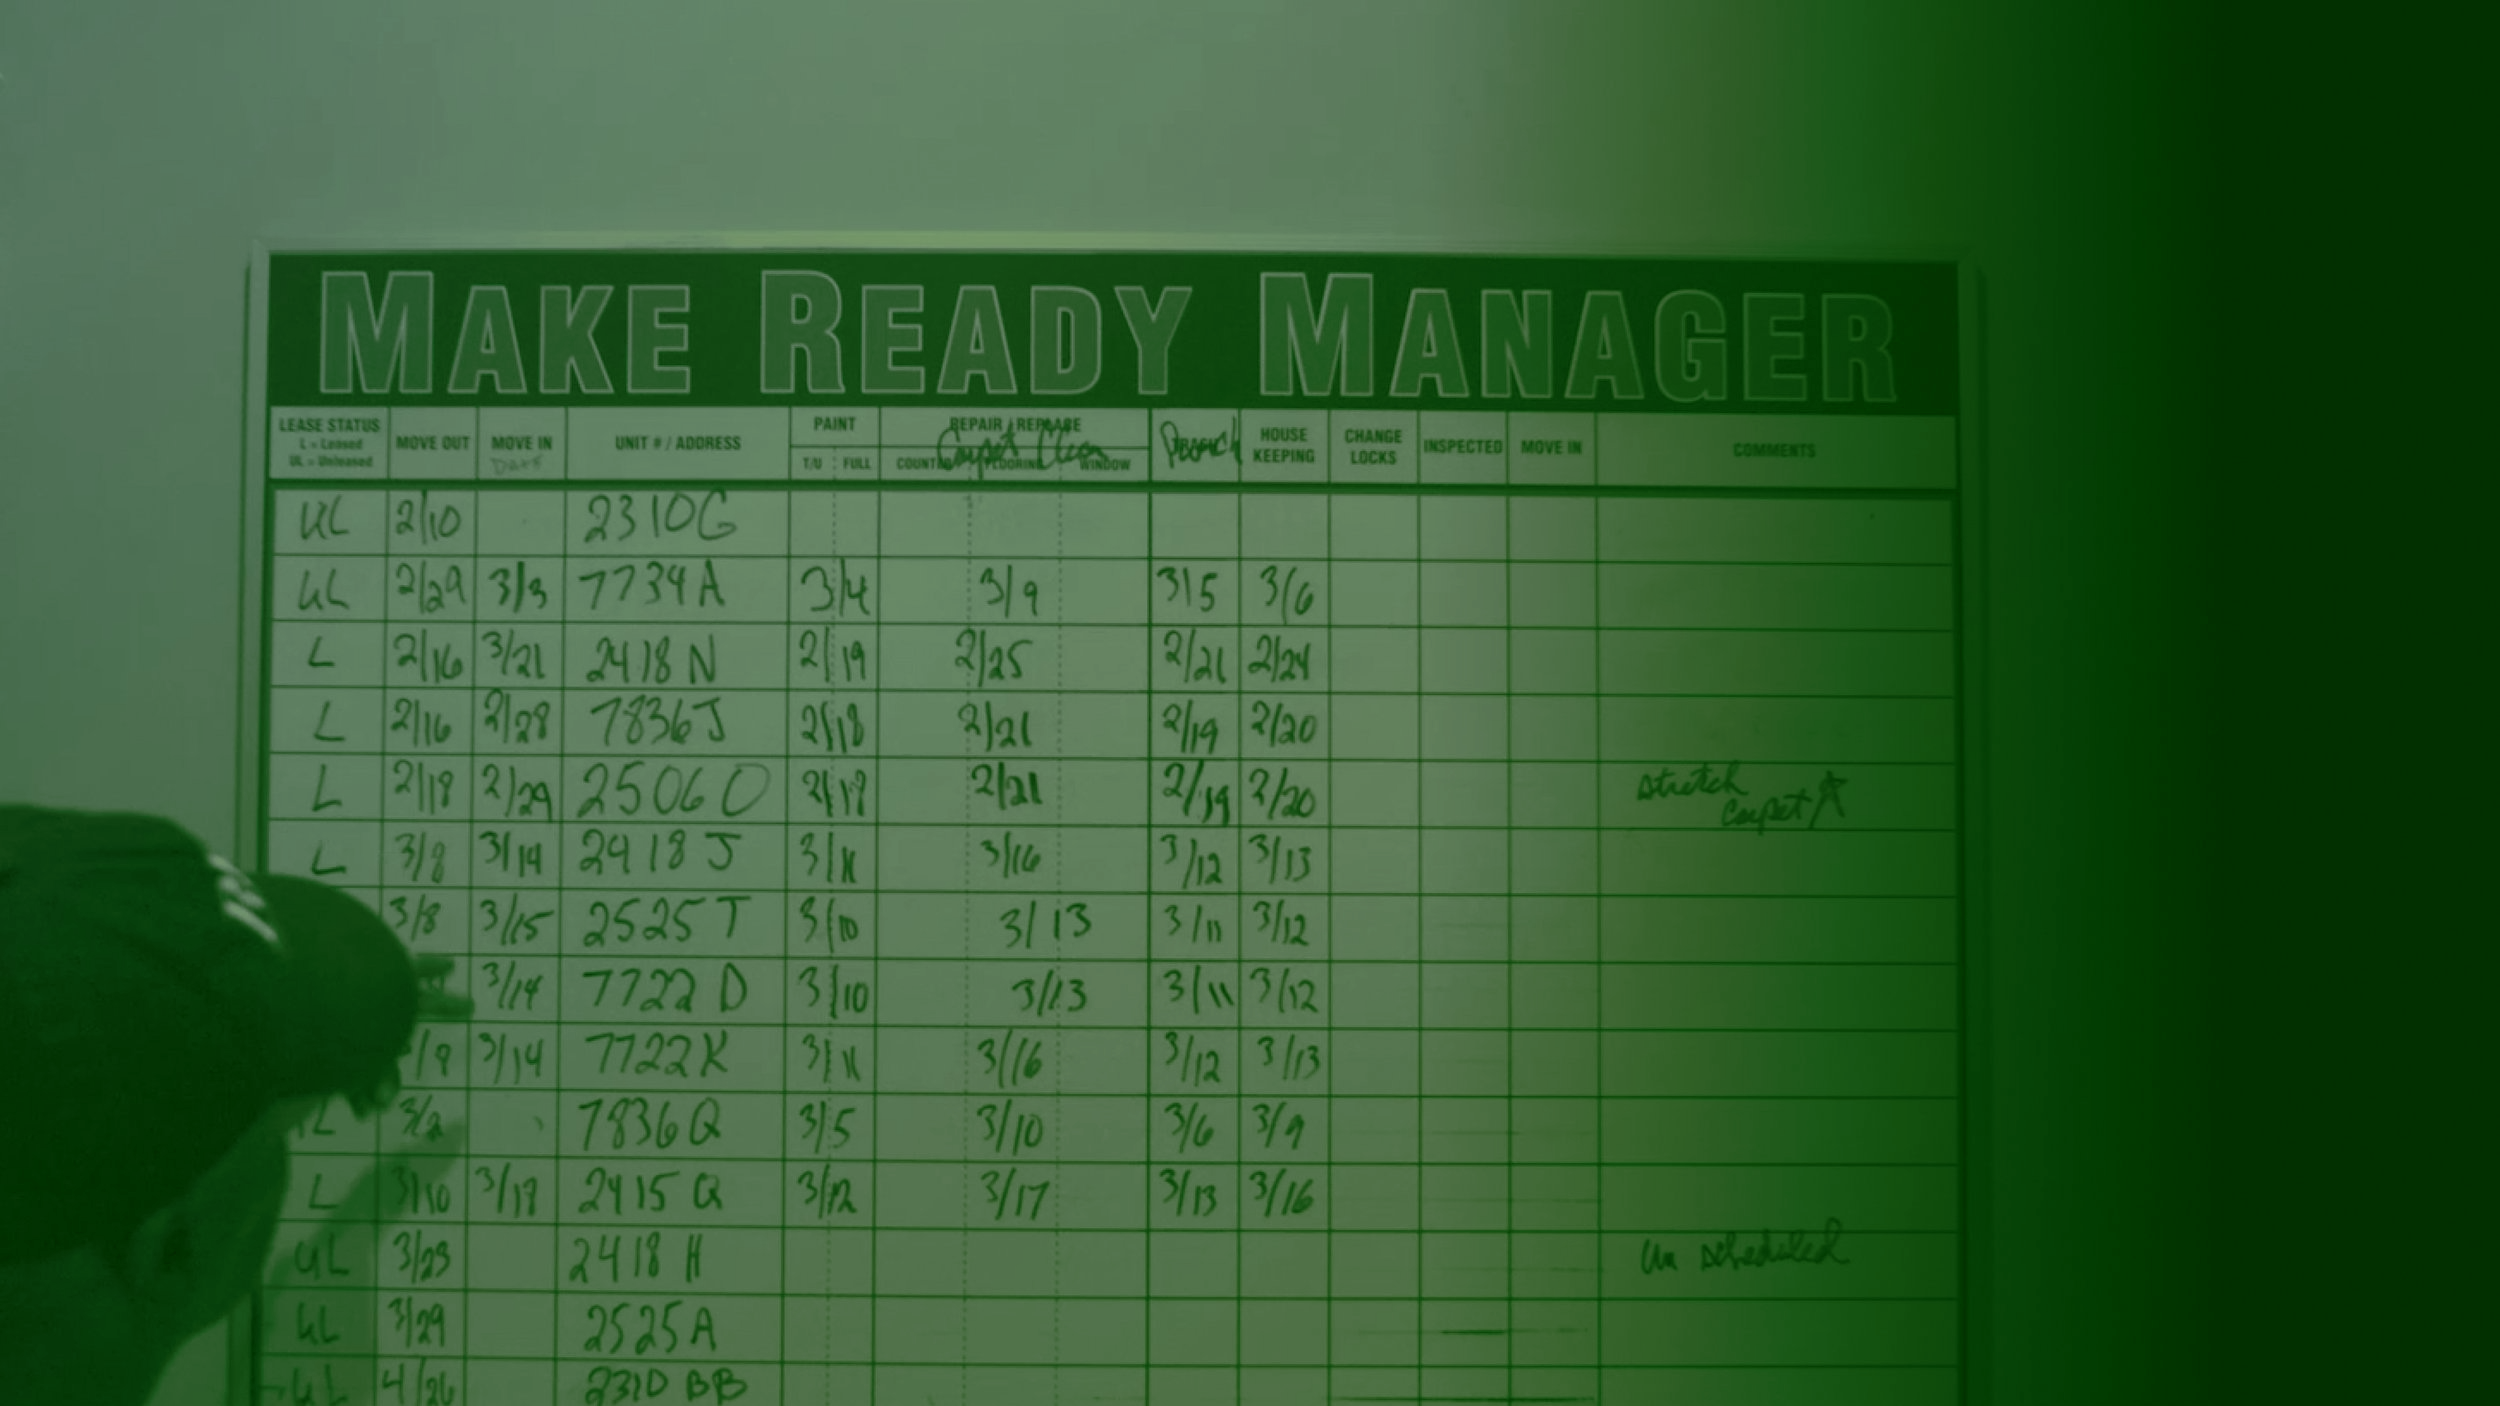 MAKE READY MANAGER
LEASE STATUS L = Leased UL = Unleased MOVE OUT MOVE IN DATE UNIT # / ADDRESS PAINT T/U FULL REPAIR / REPLACE COUNTER FLOORING WINDOW Carpet Clean Punch HOUSE KEEPING CHANGE LOCKS INSPECTED MOVE IN COMMENTS
UL 2/10 2310G
UL 2/29 3/3 7734 A 3/4 3/9 3/5 3/6
L 2/16 3/21 2418 N 2/19 2/25 2/21 2/24
L 2/16 2/28 7836 J 2/18 2/21 2/19 2/20
L 2/18 2/29 2506 O 2/18 2/21 2/19 2/20 Stretch Carpet
L 3/8 3/14 2418 J 3/11 3/16 3/12 3/13
3/8 3/15 2525 T 3/10 3/13 3/11 3/12
3/14 7722 D 3/10 3/13 3/11 3/12
/9 3/14 7722 K 3/11 3/16 3/12 3/13
L 3/2 7836 Q 3/5 3/10 3/6 3/9
L 3/10 3/18 2415 Q 3/12 3/17 3/13 3/16
UL 3/23 2418 H Un scheduled
UL 3/29 2525 A
UL 4/26 2310 BB